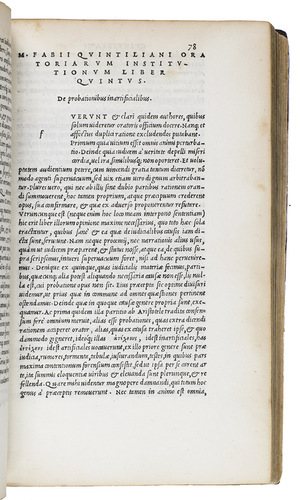 78
M. FABII QVINTILIANI ORA
TORIARVM INSTITV-
TIONVM LIBER
QVINTVS.
De probationibus inartificialibus.
f
VERVNT & clari quidem authores, quibus
solum uideretur oratoris officium docere. Nanq; et
affectus duplici ratione excludendos putabant.
Primum quia uitium esset omnis animi perturba-
tio. Deinde quia iudicem a ueritate depelli miseri
cordia, uel ira, similibusq; non oporteret. Et uolu-
ptatem audientium petere, cum uincendi gratia tantum diceretur, nō
modo agenti superuacuum, sed uix etiam uiro dignum arbitraban-
tur. Plures uero, qui nec ab illis sine dubio partibus rationem oran-
di summouerent, hoc tamen proprium, atq; præcipuum crederent
opus, sua confirmare, & quæ ex aduerso proponerentur refutare.
Vtrumcunq; est (neque enim hoc loco meam interpono sententiam)
hic erit liber illorum opinione maxime necessarius, quia toto hæc sola
tractantur, quibus sane & ea quæ de iudicialibus causis iam di-
cta sunt, seruiunt. Nam neque prooemij, nec narrationis alius usus,
quam ut iudicem præparent, & status nosse, atque ea, de quibus su-
pra scripsimus, intueri superuacuum foret, nisi ad hanc perueniré-
mus. Denique ex quinque, quas iudicialis materiæ fecimus, parti-
bus, quæcunq; alia potest aliquando necessaria causæ non esse, lis nul-
la est, cui probatione opus non sit. Eius præcepta sic optime diuisuri
uidemur, ut prius quæ in commune ad omnes quæstiones pertinent
ostendamus: Deinde quæ in quoque causæ genere propria sint, exe-
quamur. Ac prima quidem illa partitio ab Aristotele tradita consen-
sum fere omnium meruit, alias esse probationes, quas extra dicendi
rationem acciperet orator, alias, quas ex causa traheret ipse, & quo
dammodo gigneret, ideoq; illas
uocauerunt, ex illo priore genere sunt præ
iudicia, rumores, tormenta, tabulæ, iusiurandum, testes, in quibus pars
maxima contentionum forensium consistit, sed ut ipsa per se carent ar-
te, ita summis eloquentiæ uiribus & eleuanda sunt plerunque, & re-
fellenda. Quare mihi uidentur magnopere damnandi, qui totum hoc
genus a præceptis remouerunt. Nec tamen in animo est omnia,